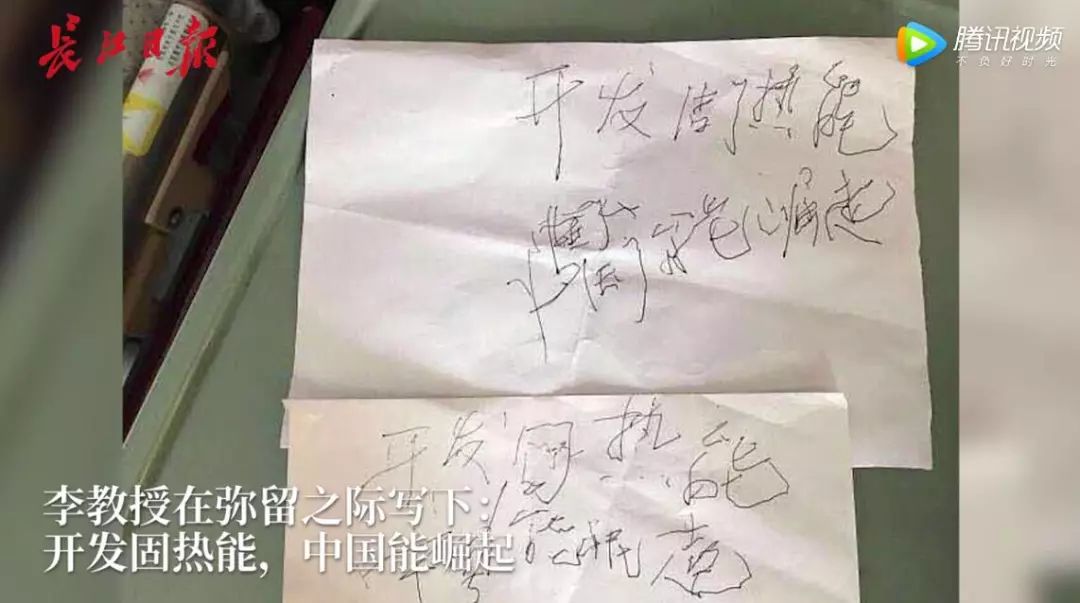 长江日报
腾讯视频
不负好时光
开发固热能
能崛起
开发固热能
能崛起
李教授在弥留之际写下：
开发固热能，中国能崛起